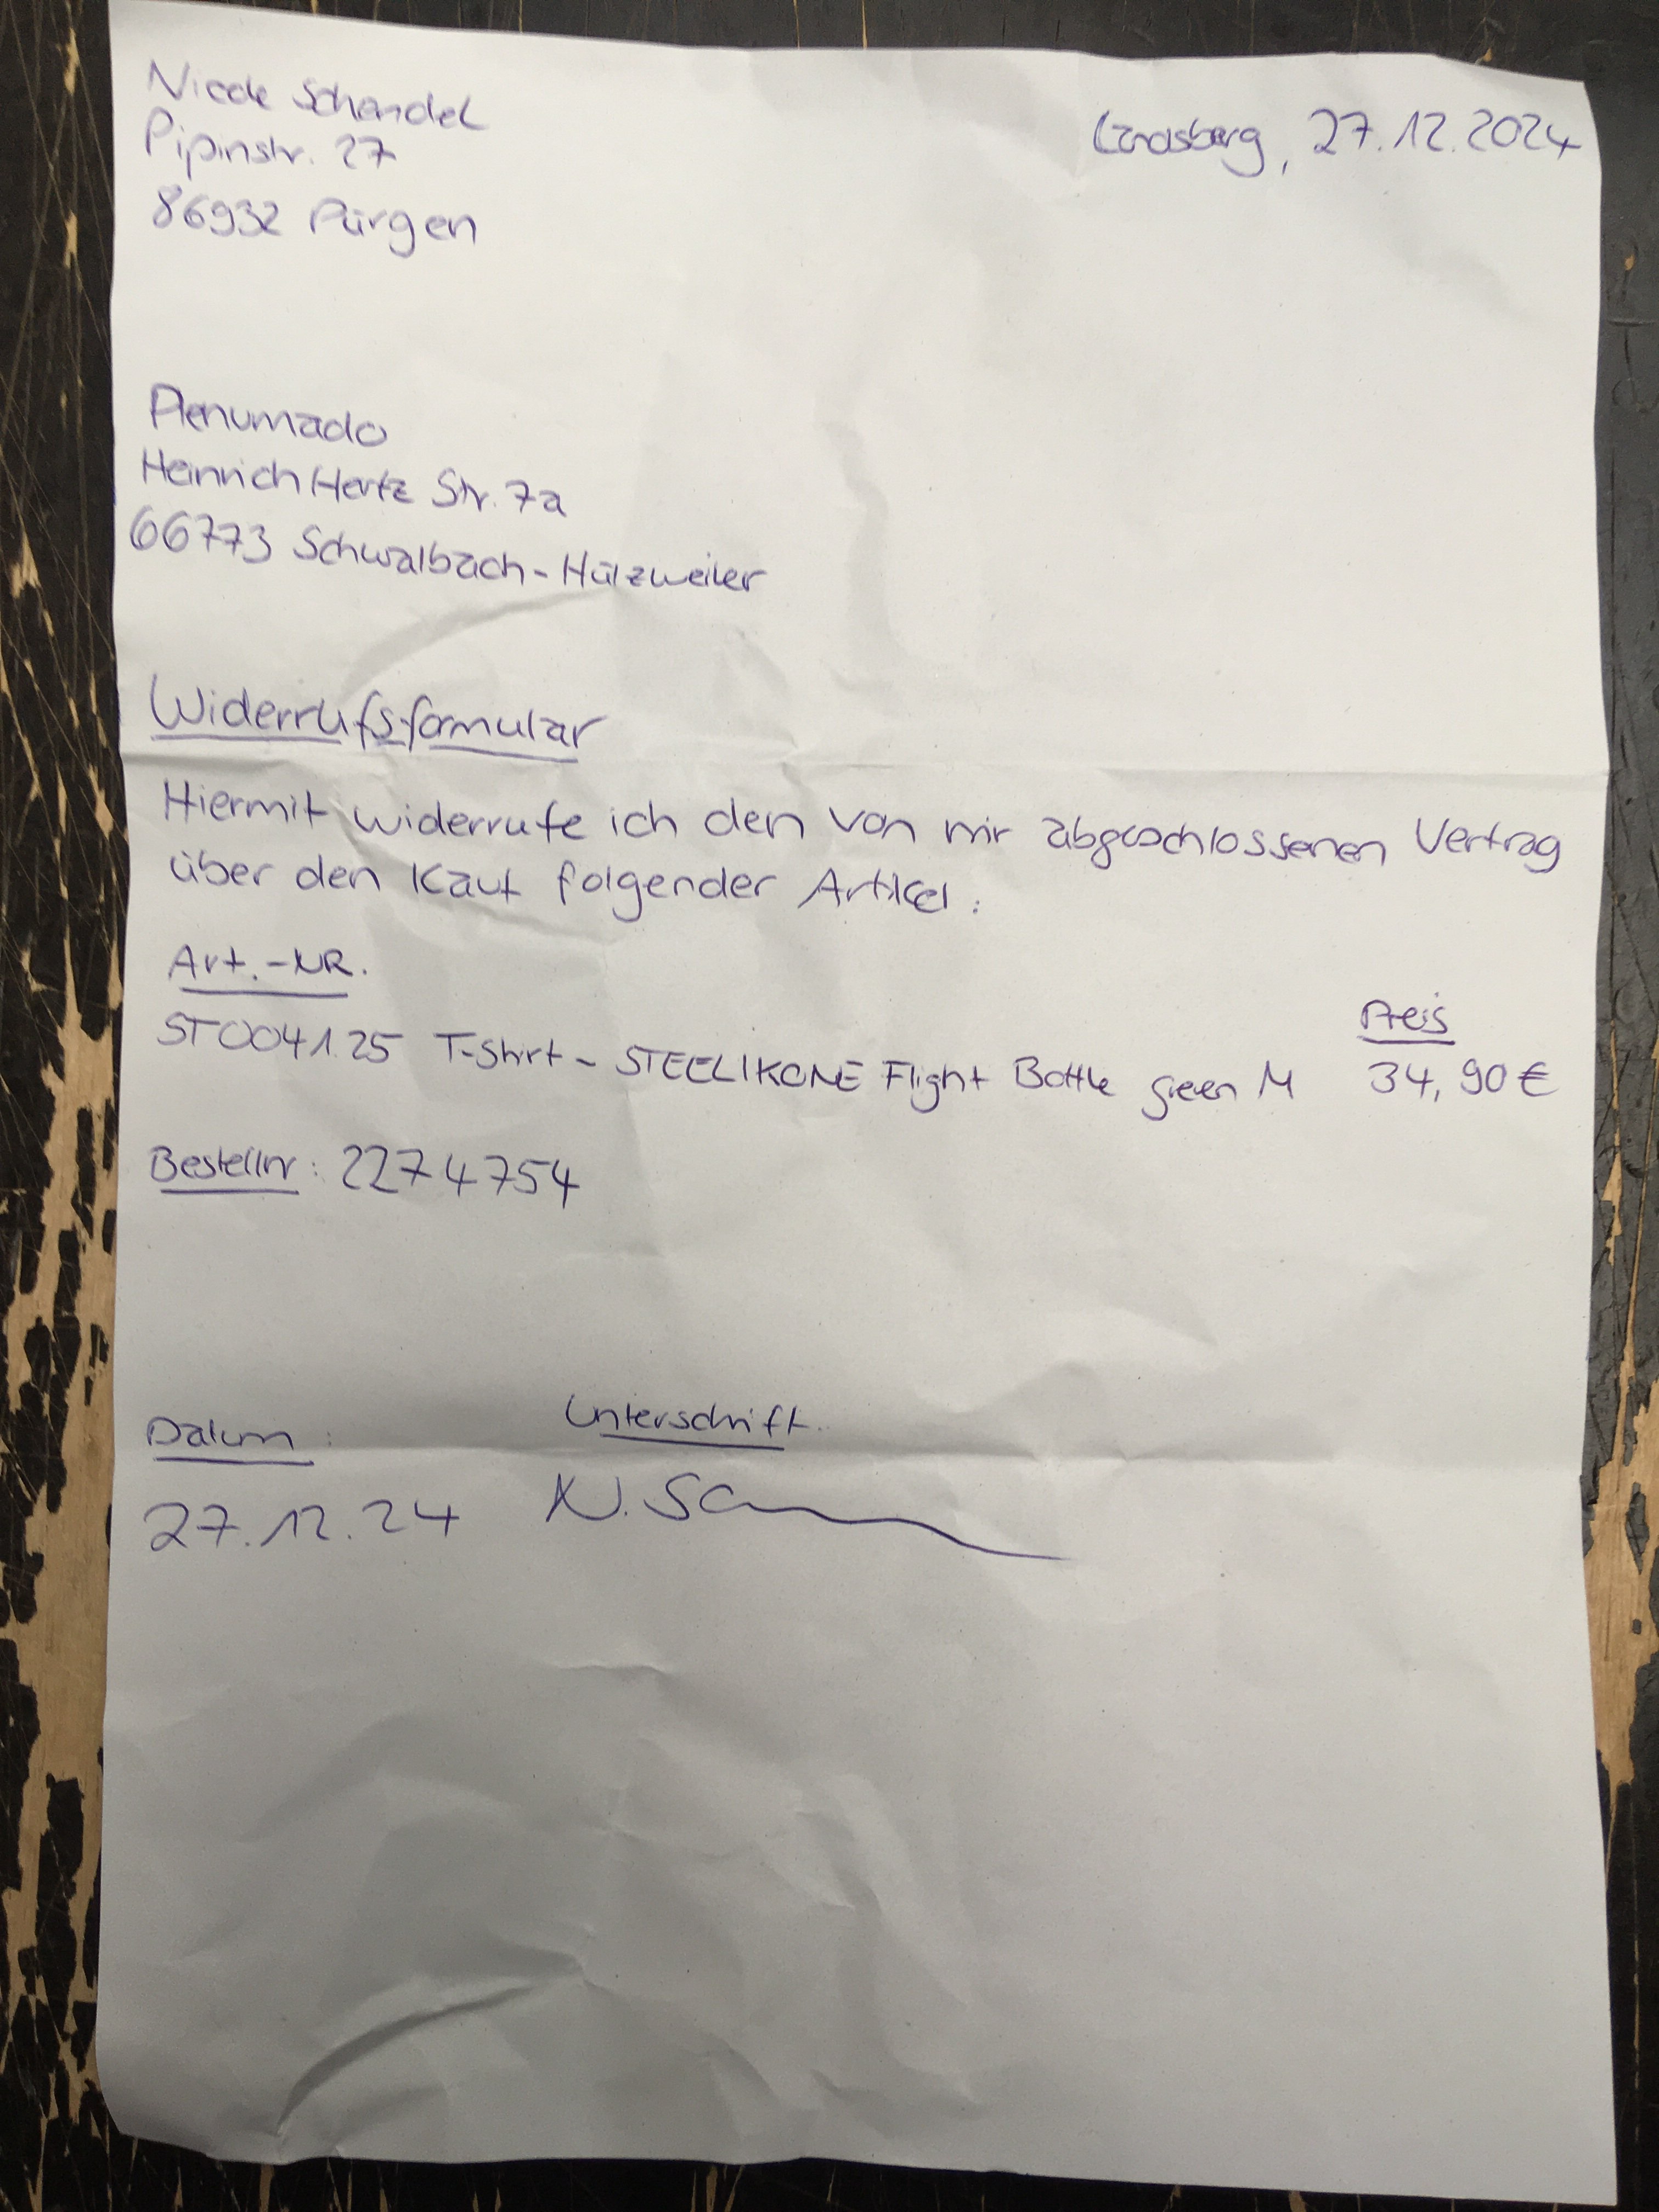 Nicole Schandel
Landsberg, 27.12.2024
Pipinstr. 27
86932 Pürgen
Plenumado
Heinrich Hertz Str. 7a
66773 Schwalbach-Hülzweiler
Widerrufsformular
Hiermit widerrufe ich den von mir abgeschlossenen Vertrag
über den Kauf folgender Artikel:
Art.-NR.
Preis
ST0041.25 T-Shirt - STEELIKONE Flight Bottle green M 34,90€
Bestellnr: 2274754
Datum: Unterschrift.
27.12.24 N. Sc